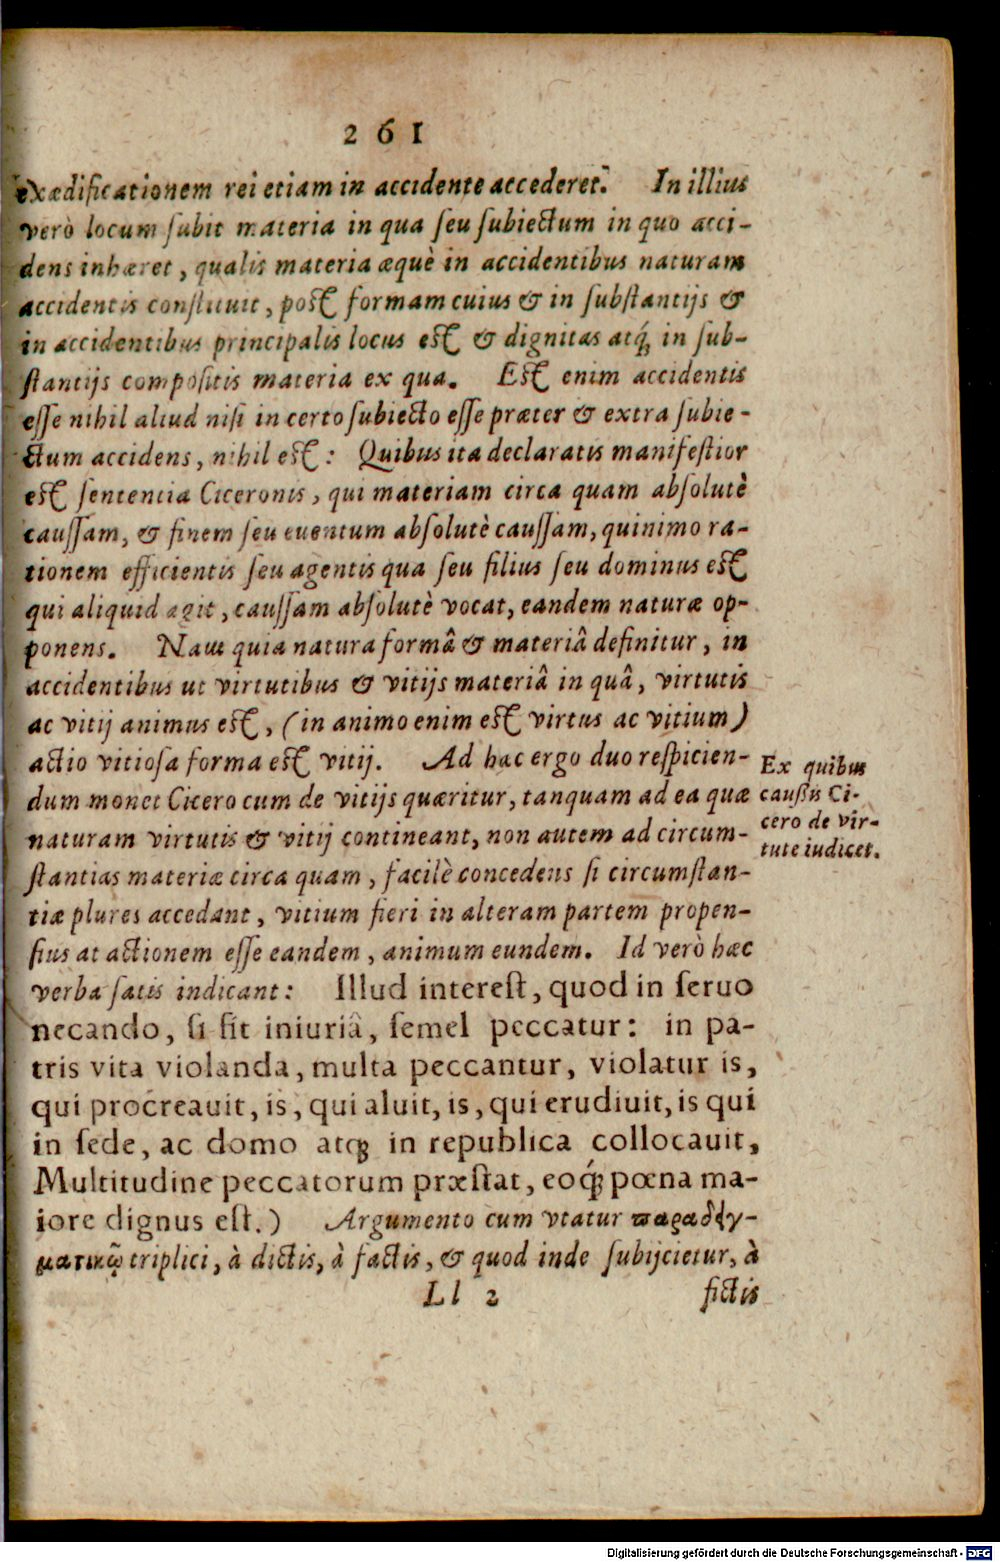 261
exædificationem rei etiam in accidente accederet. In illius
verò locum ſubit materia in qua ſeu ſubiectum in quo acci-
dens inhæret, qualis materia æquè in accidentibus naturam
accidentis conſtituit, poſt formam cuius & in ſubſtantijs &
in accidentibus principalis locus eſt & dignitas atq́; in ſub-
ſtantijs compoſitis materia ex qua. Eſt enim accidentis
eſſe nihil aliud niſi in certo ſubiecto eſſe præter & extra ſubie-
ctum accidens, nihil eſt: Quibus ita declaratis manifeſtior
eſt ſententia Ciceronis, qui materiam circa quam abſolutè
cauſſam, & finem ſeu euentum abſolutè cauſſam, quinimo ra-
tionem efficientis ſeu agentis qua ſeu filius ſeu dominus eſt
qui aliquid agit, cauſſam abſolutè vocat, eandem naturæ op-
ponens. Nam quia natura formâ & materiâ definitur, in
accidentibus ut virtutibus & vitijs materiâ in quâ, virtutis
ac vitij animus eſt, (in animo enim eſt virtus ac vitium)
actio vitioſa forma eſt vitij. Ad hæc ergo duo reſpicien-
dum monet Cicero cum de vitijs quæritur, tanquam ad ea quæ
naturam virtutis & vitij contineant, non autem ad circum-
ſtantias materiæ circa quam, facilè concedens ſi circumſtan-
tiæ plures accedant, vitium fieri in alteram partem propen-
ſius at actionem eſſe eandem, animum eundem. Id verò hæc
verba ſatis indicant: Illud intereſt, quod in ſeruo
necando, ſi ſit iniuriâ, ſemel peccatur: in pa-
tris vita violanda, multa peccantur, violatur is,
qui procreauit, is, qui aluit, is, qui erudiuit, is qui
in ſede, ac domo atq; in republica collocauit,
Multitudine peccatorum præſtat, eoq́; pœna ma-
iore dignus eſt.) Argumento cum vtatur παραδειγ-
ματικῷ triplici, à dictis, à factis, & quod inde ſubijcietur, à
Ll 2 fictis
Ex quibus
cauſsis Ci-
cero de vir-
tute iudicet.
Digitalisierung gefördert durch die Deutsche Forschungsgemeinschaft - DFG